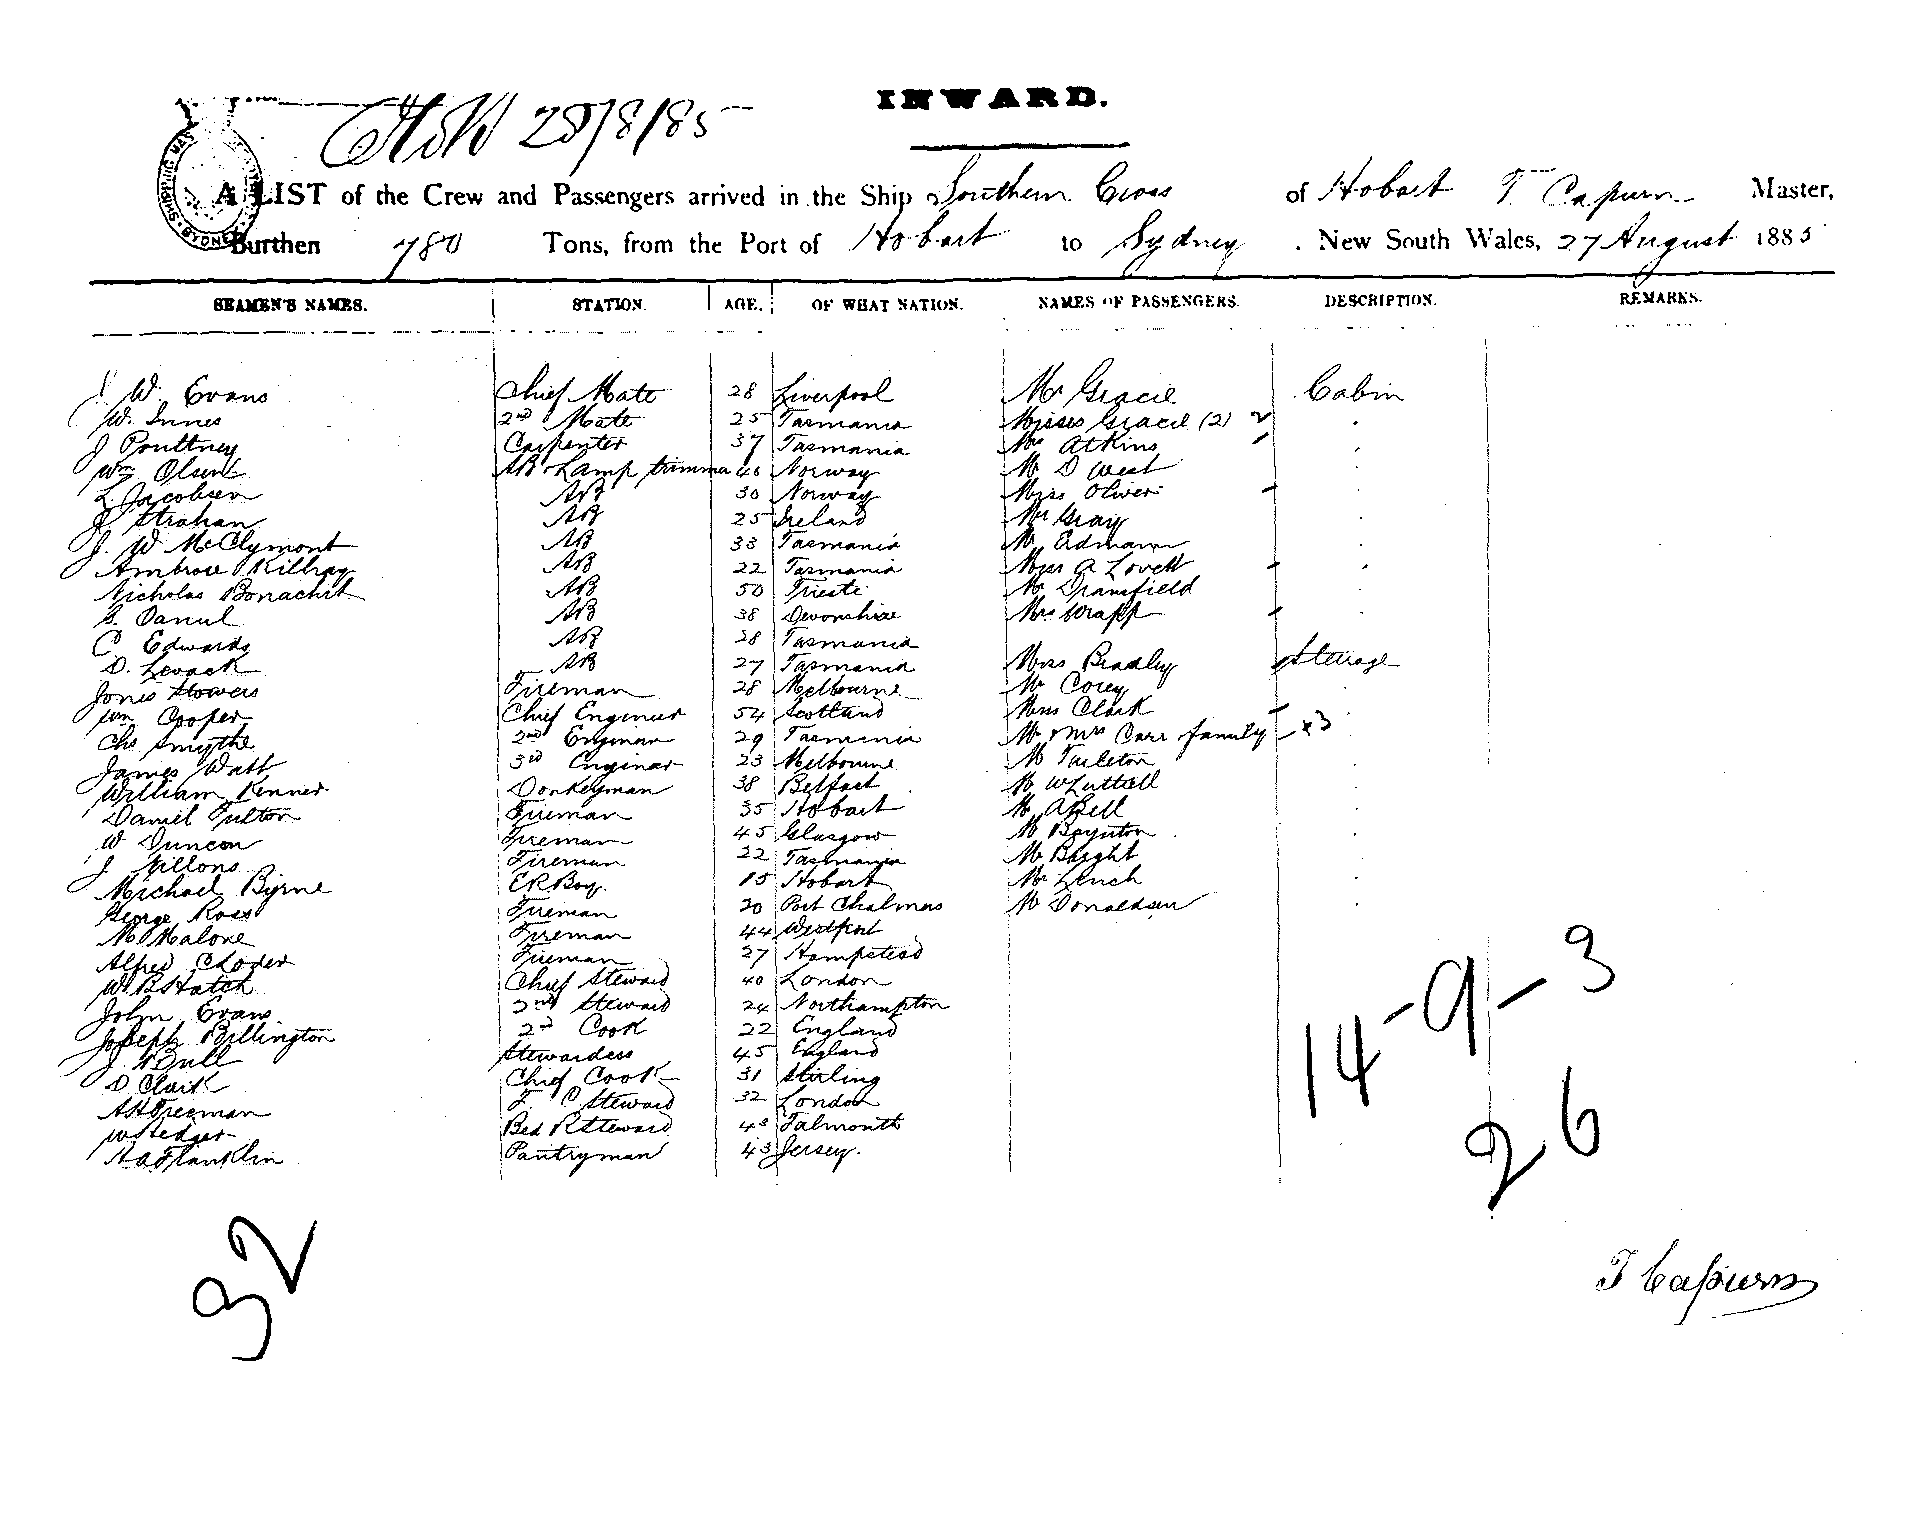 INWARD.
28/8/85
A LIST of the Crew and Passengers arrived in the Ship Southern Cross of Hobart T Capurn Master,
Burthen 780 Tons, from the Port of Hobart to Sydney. New South Wales, 27 August 1885
SEAMEN'S NAMES. STATION. AGE. OF WHAT NATION. NAMES OF PASSENGERS. DESCRIPTION. REMARKS.
W. Evans Chief Mate 28 Liverpool Mr Gracie Cabin
W. Innes 2nd Mate 25 Tasmania Misses Gracie (2) 2
J Poultney Carpenter 37 Tasmania Mrs Atkins
Wm Olsen AB & Lamp trimma 40 Norway Mr D West
L Jacobsen AB 30 Norway Miss Oliver
J Strahan AB 25 Ireland Mr Gray
J. W McClymont AB 33 Tasmania Mr Erdmann
Ambrose Killray AB 22 Tasmania Miss A Lovett
Nicholas Bonachit AB 50 Trieste Mr Dransfield
S. Daniel AB 38 Devonshire Mrs Wrapp
C. Edwards AB 28 Tasmania
D. Levack AB 27 Tasmania Miss Bradley Steerage
Jones Stowers Fireman 28 Melbourne Mr Corey
Wm Cooper Chief Engineer 54 Scotland Miss Clark
Chs Smythe 2nd Engineer 29 Tasmania Mr & Mrs Carr family x3
James Watt 3rd Engineer 23 Melbourne Mr Tarleton
William Kenner Donkeyman 38 Belfast Mr W Luttrell
Daniel Fulton Fireman 35 Hobart Mr A Bell
W Duncan Fireman 45 Glasgow Mr Boynton
J Fillons Fireman 22 Tasmania Mr Bright
Michael Byrne ER Boy 15 Hobart Mr Lynch
George Ross Fireman 20 Port Chalmers Mr Donaldson
M Malone Fireman 44 Westport
Alfred Fireman 27 Hampstead
W. B Hatch Chief Steward 40 London
John Evans 2nd Steward 24 Northampton
Joseph Billington 2nd Cook 22 England
J. Bull Stewardess 45 England
D Clark Chief Cook 31 Stirling
A H Freeman F. C Steward 32 London
W Hedger Bed R Steward 43 Falmouth
H A Franklin Pantryman 43 Jersey.
14-9-3
26
32
T Capurn